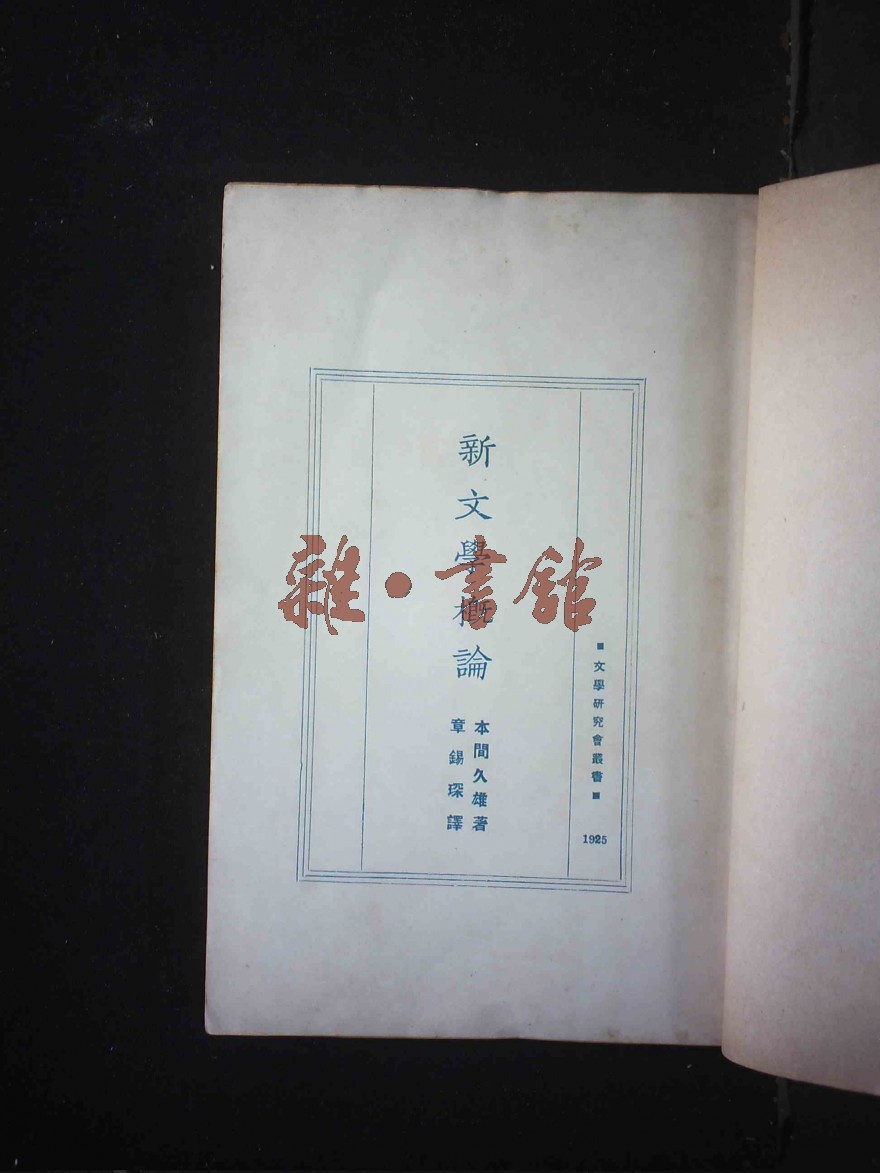 文學研究會叢書
1925
新文學概論
本間久雄著
章錫琛譯
雜·書館